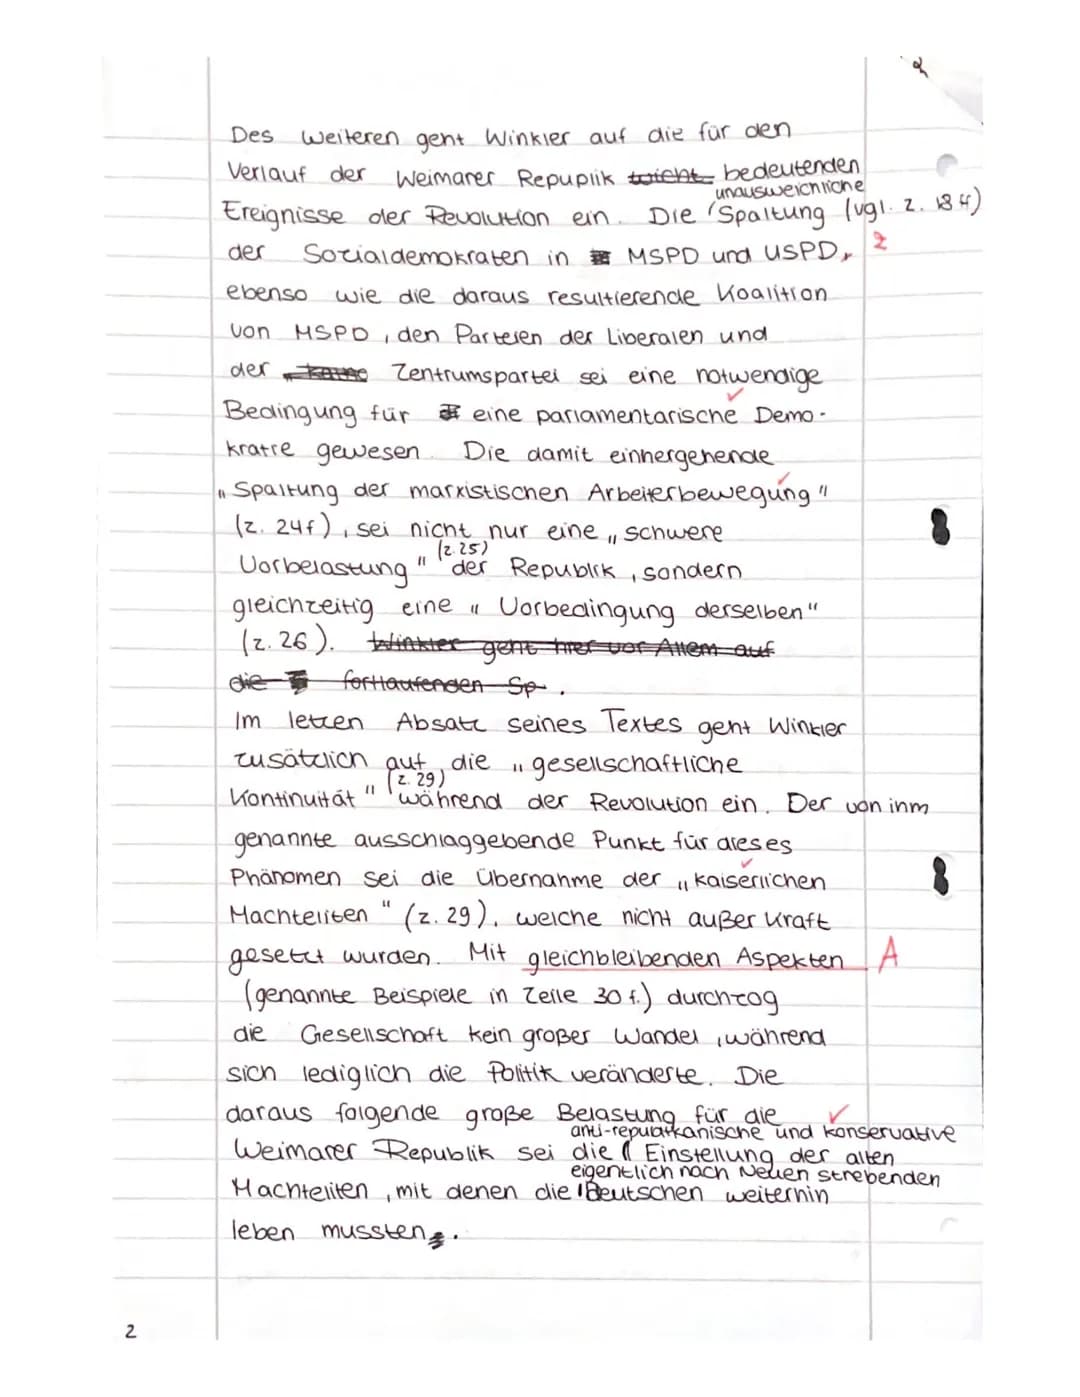 Des weiteren geht Winkler auf die für den
Verlauf der Weimarer Republik bedeutenden
Ereignisse der Revolution ein. Die unausweichliche Spaltung (vgl. Z. 18 ff)
der Sozialdemokraten in MSPD und USPD, Z
ebenso wie die daraus resultierende Koalition
von MSPD, den Parteien der Liberalen und
der Zentrumspartei sei eine notwendige
Bedingung für eine parlamentarische Demo-
kratie gewesen. Die damit einhergehende
"Spaltung der marxistischen Arbeiterbewegung"
(Z. 24f), sei nicht nur eine „schwere
Vorbelastung" (Z. 25) der Republik, sondern
gleichzeitig eine „Vorbedingung derselben"
(Z. 26). Winkler geht hier vor Allem auf
die fortlaufenden Sp.
Im letzen Absatz seines Textes geht Winkler
zusätzlich auf die „gesellschaftliche
Kontinuität" (Z. 29) während der Revolution ein. Der von ihm
genannte ausschlaggebende Punkt für dieses
Phänomen sei die Übernahme der „kaiserlichen
Machteliten" (Z. 29), welche nicht außer Kraft
gesetzt wurden. Mit gleichbleibenden Aspekten A
(genannte Beispiele in Zeile 30 f.) durchzog
die Gesellschaft kein großer Wandel, während
sich lediglich die Politik veränderte. Die
daraus folgende große Belastung für die
Weimarer Republik sei die anti-republikanische und konservative Einstellung der alten
Machteliten, mit denen die eigentlich nach Neuen strebenden Deutschen weiterhin
leben mussten.
2